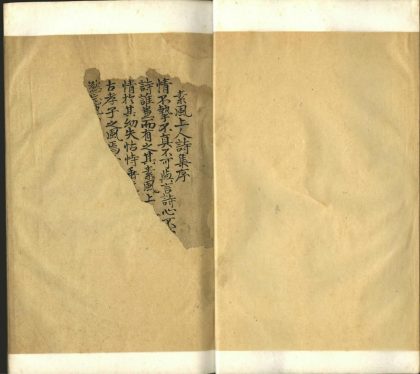 素風上人詩集序
情不摯不真不可與言詩心不
詩誰出而有之其素風上
情於其幼失怙恃
古孝子之風焉